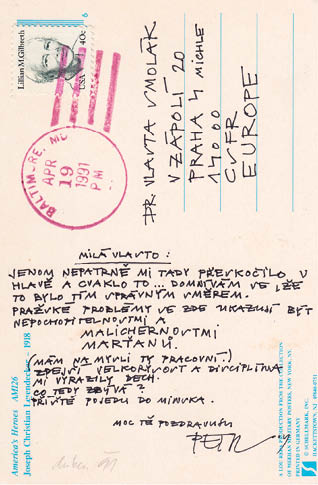 Lillian M. Gilbreth
USA 40c
6
BALTIMORE, MD
APR
19
1991
PM
PR. VLASTA SMOLÁK
V ZÁPOLÍ 20
PRAHA 4 MICHLE
14000
ČSFR
EUROPE
MILÁ VLASTO:
JENOM NEPATRNĚ MI TADY PŘESKOČILO V
HLAVĚ A CVAKLO TO... DOMNÍVÁM SE, ŽE
TO BYLO TÍM SPRÁVNÝM SMĚREM.
PRAŽSKÉ PROBLÉMY SE ZDE UKAZUJÍ BÝT
NEPOCHOPITELNOSTMI A
MALICHERNOSTMI
MARŤANŮ.
(MÁM NA MYSLI TY PRACOVNÍ)
ZDEJŠÍ VELKORYSOST A DISCIPLÍNA
MI VYRAZILY DECH.
CO TEDY ZBÝVÁ?
PŘÍŠTĚ POJEDU DO
MOC TĚ POZDRAVUJI
PETR
America's Heroes AM126
Joseph Christian Leyendecker - 1918
A LOU REDA PRODUCTION FROM THE COLLECTION
OF MERIDIAN MILITARY POSTERS, NEW YORK, NY.
PRINTED IN GERMANY
© SCHILLERPARK, INC.
HACKETTSTOWN, NJ